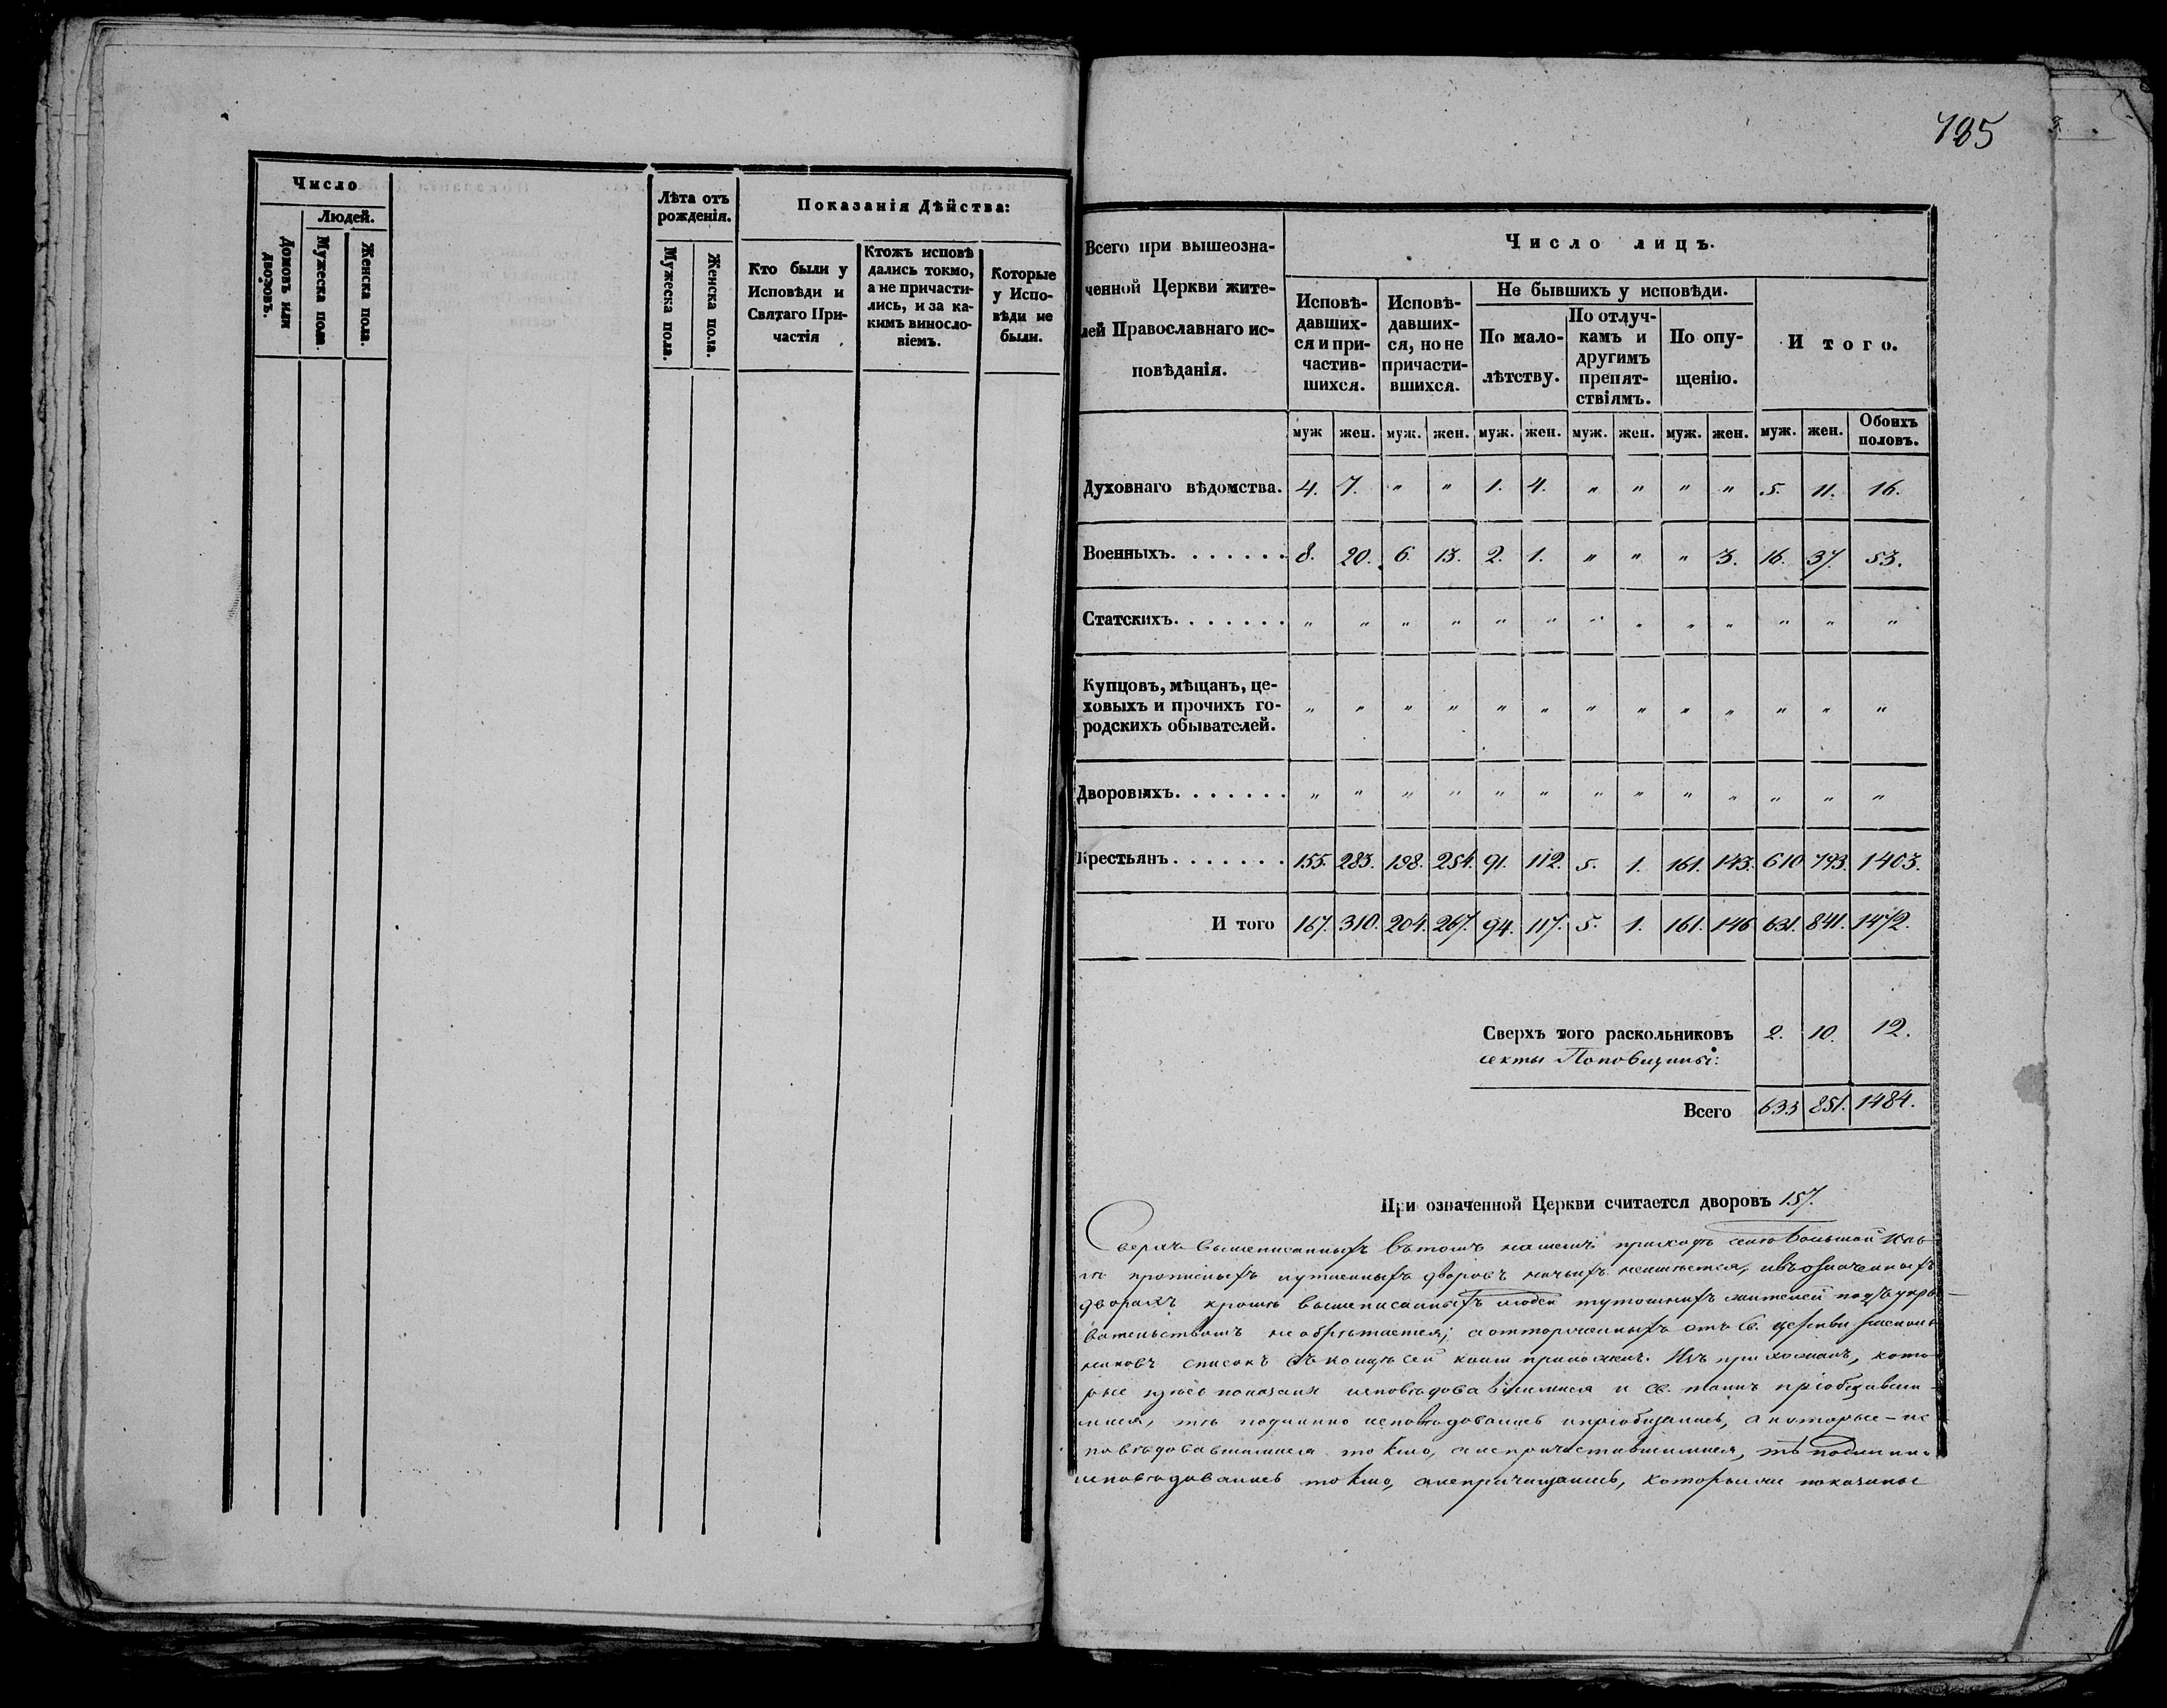 Число
Людей.
Домовъ или дворовъ.
Мужеска пола.
Женска пола.
Лѣта отъ
рожденія.
Мужеска пола.
Женска пола.
Показанія Дѣйства:
Кто были у
Исповѣди и
Святаго При-
частія
Ктожъ исповѣ
дались токмо,
а не причасти-
лись, и за ка-
кимъ винос­ло-
віемъ.
Которые
у Испо-
вѣди не
были.
185
Всего при вышеозна-
ченной Церкви жите-
лей Православнаго ис-
повѣданія.
Число лицъ.
Исповѣ-
давших-
ся и при-
частив-
шихся.
Исповѣ-
давших-
ся, но не
причасти-
вшихся.
Не бывшихъ у исповѣди.
По мало-
лѣтству.
По отлуч-
камъ и
другимъ
препят-
ствіямъ.
По опу-
щенію.
И того.
муж жен. муж. жен. муж. жен. муж. жен. муж. жен. муж. жен. Обоихъ половъ.
Духовнаго вѣдомства. 4. 7. " " 1. 4. " " " " 5. 11. 16.
Военныхъ. . . . . . . 8. 20. 6. 13. 2. 1. " " " 3. 16. 37. 53.
Статскихъ. . . . . . . " " " " " " " " " " " " "
Купцовъ, мѣщанъ, це-
ховыхъ и прочихъ го-
родскихъ обывателей. " " " " " " " " " " " " "
Дворовыхъ. . . . . . . " " " " " " " " " " " " "
Крестьянъ . . . . . . . 155. 283. 198. 254. 91. 112. 5. 1. 161. 143. 610 793. 1403.
И того 167. 310. 204. 267. 94. 117. 5. 1. 161. 146 631. 841. 1472.
Сверхъ того раскольниковъ 2. 10. 12.
секты Поповщины:
Всего 633 851. 1484.
При означенной Церкви считается дворовъ 157.
Сверхъ вышеписанныхъ въ томъ нашемъ приходѣ села Большой
прописныхъ и утаенныхъ дворовъ ничьихъ неимѣется, и въ означенныхъ
дворахъ кромѣ вышеписанныхъ людей тутошнихъ жителей подъ укры-
вательствомъ не обрѣтается; а отторженныхъ отъ Св. церкви расколь
никовъ списокъ въ концѣ сей книги приложенъ. Изъ прихожанъ, кото-
рые здѣсь показаны исповѣдовавшимися и Св. таинъ пріобщавши-
мися, тѣ подлинно исповѣдовались и пріобщались, а которые - ис
повѣдовавшимися токмо, а непричастившимися, тѣ подлинно
исповѣдовались токмо, а непричащались, которыми показаны